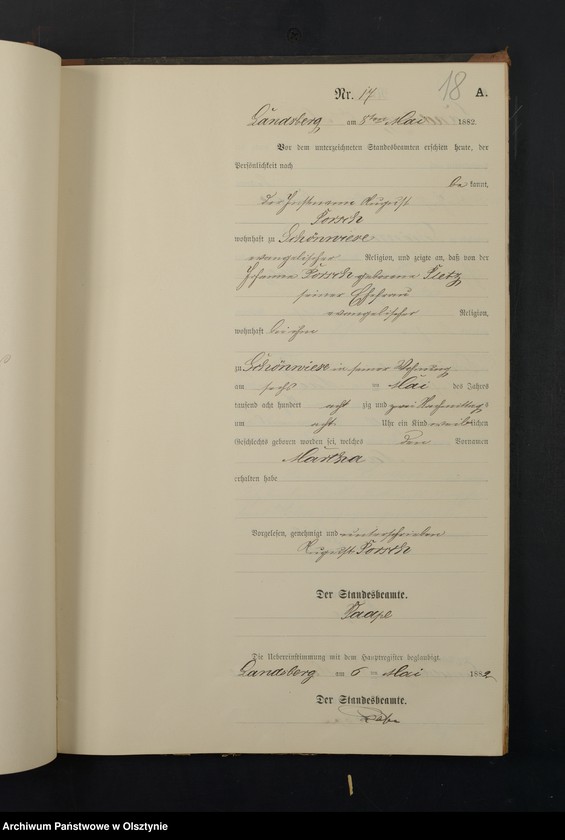 18
Nr. 17 A.
Landsberg am Mai 1882.
Vor dem unterzeichneten Standesbeamten erschien heute, der
Persönlichkeit nach
be kannt,
der Instmann August
wohnhaft zu Schönwiese
evangelischer Religion, und zeigte an, daß von der
Johanna geborene
seiner Ehefrau
evangelischer Religion,
wohnhaft bei ihm
zu Schönwiese in seiner Wohnung
am Mai des Jahres
tausend acht hundert acht zig und zwei Nachmittags
um acht Uhr ein Kind weiblichen
Geschlechts geboren worden sei, welches den Vornamen
Martha
erhalten habe
Vorgelesen, genehmigt und unterschrieben
August
Der Standesbeamte.
Die Uebereinstimmung mit dem Hauptregister beglaubigt.
Landsberg am Mai 1882
Der Standesbeamte.
Archiwum Państwowe w Olsztynie